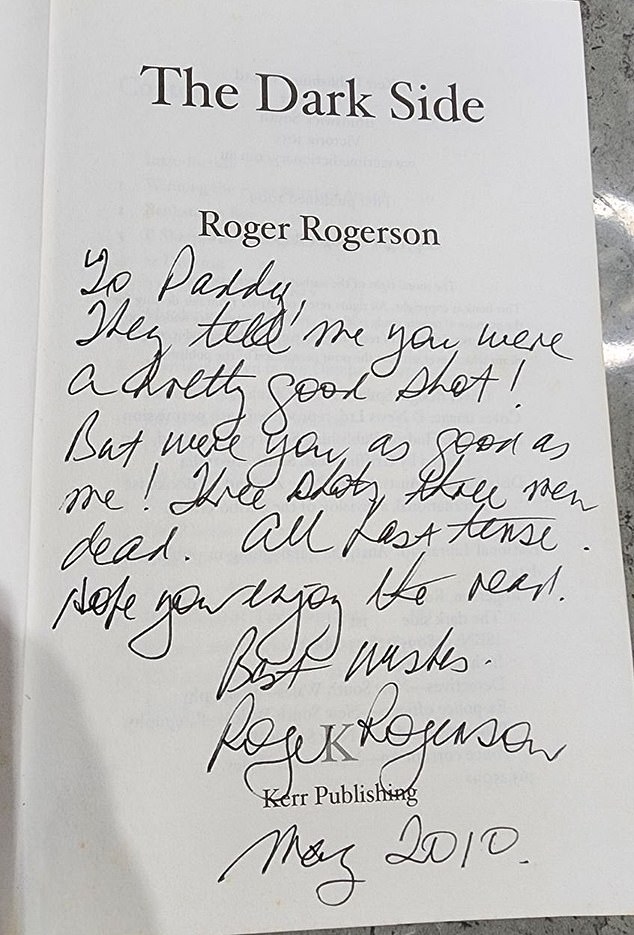 The Dark Side
Roger Rogerson
To Paddy,
They tell me you were
a pretty good shot!
But were you as good as
me! Three shots, three men
dead. All past tense.
Hope you enjoy the read.
Best wishes.
Roger Rogerson
K
Kerr Publishing
May 2010.